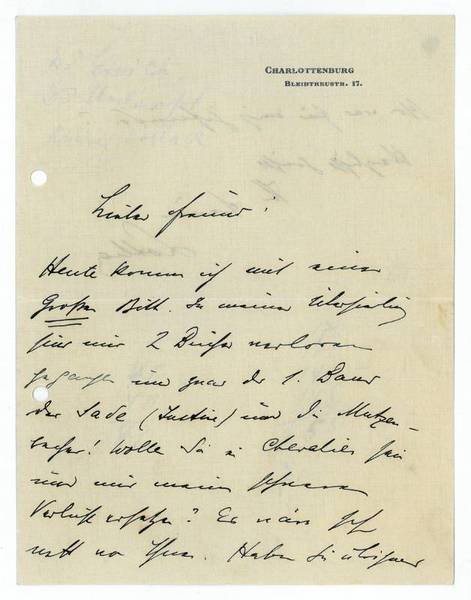 CHARLOTTENBURG
BLEIBTREUSTR. 17.
Lieber Freund!
Heute komme ich mit einer
Großen Bitte. In meiner Übersiedlung
sind mir 2 Bücher verloren
gegangen und zwar der 1. Band
der Sade (Justine) und die Mutzen-
bacher! Wollen Sie ein Chevalier sein
und mir meinen
Verlust ersetzen? Es wäre sehr
nett von Ihnen. Haben Sie übrigens